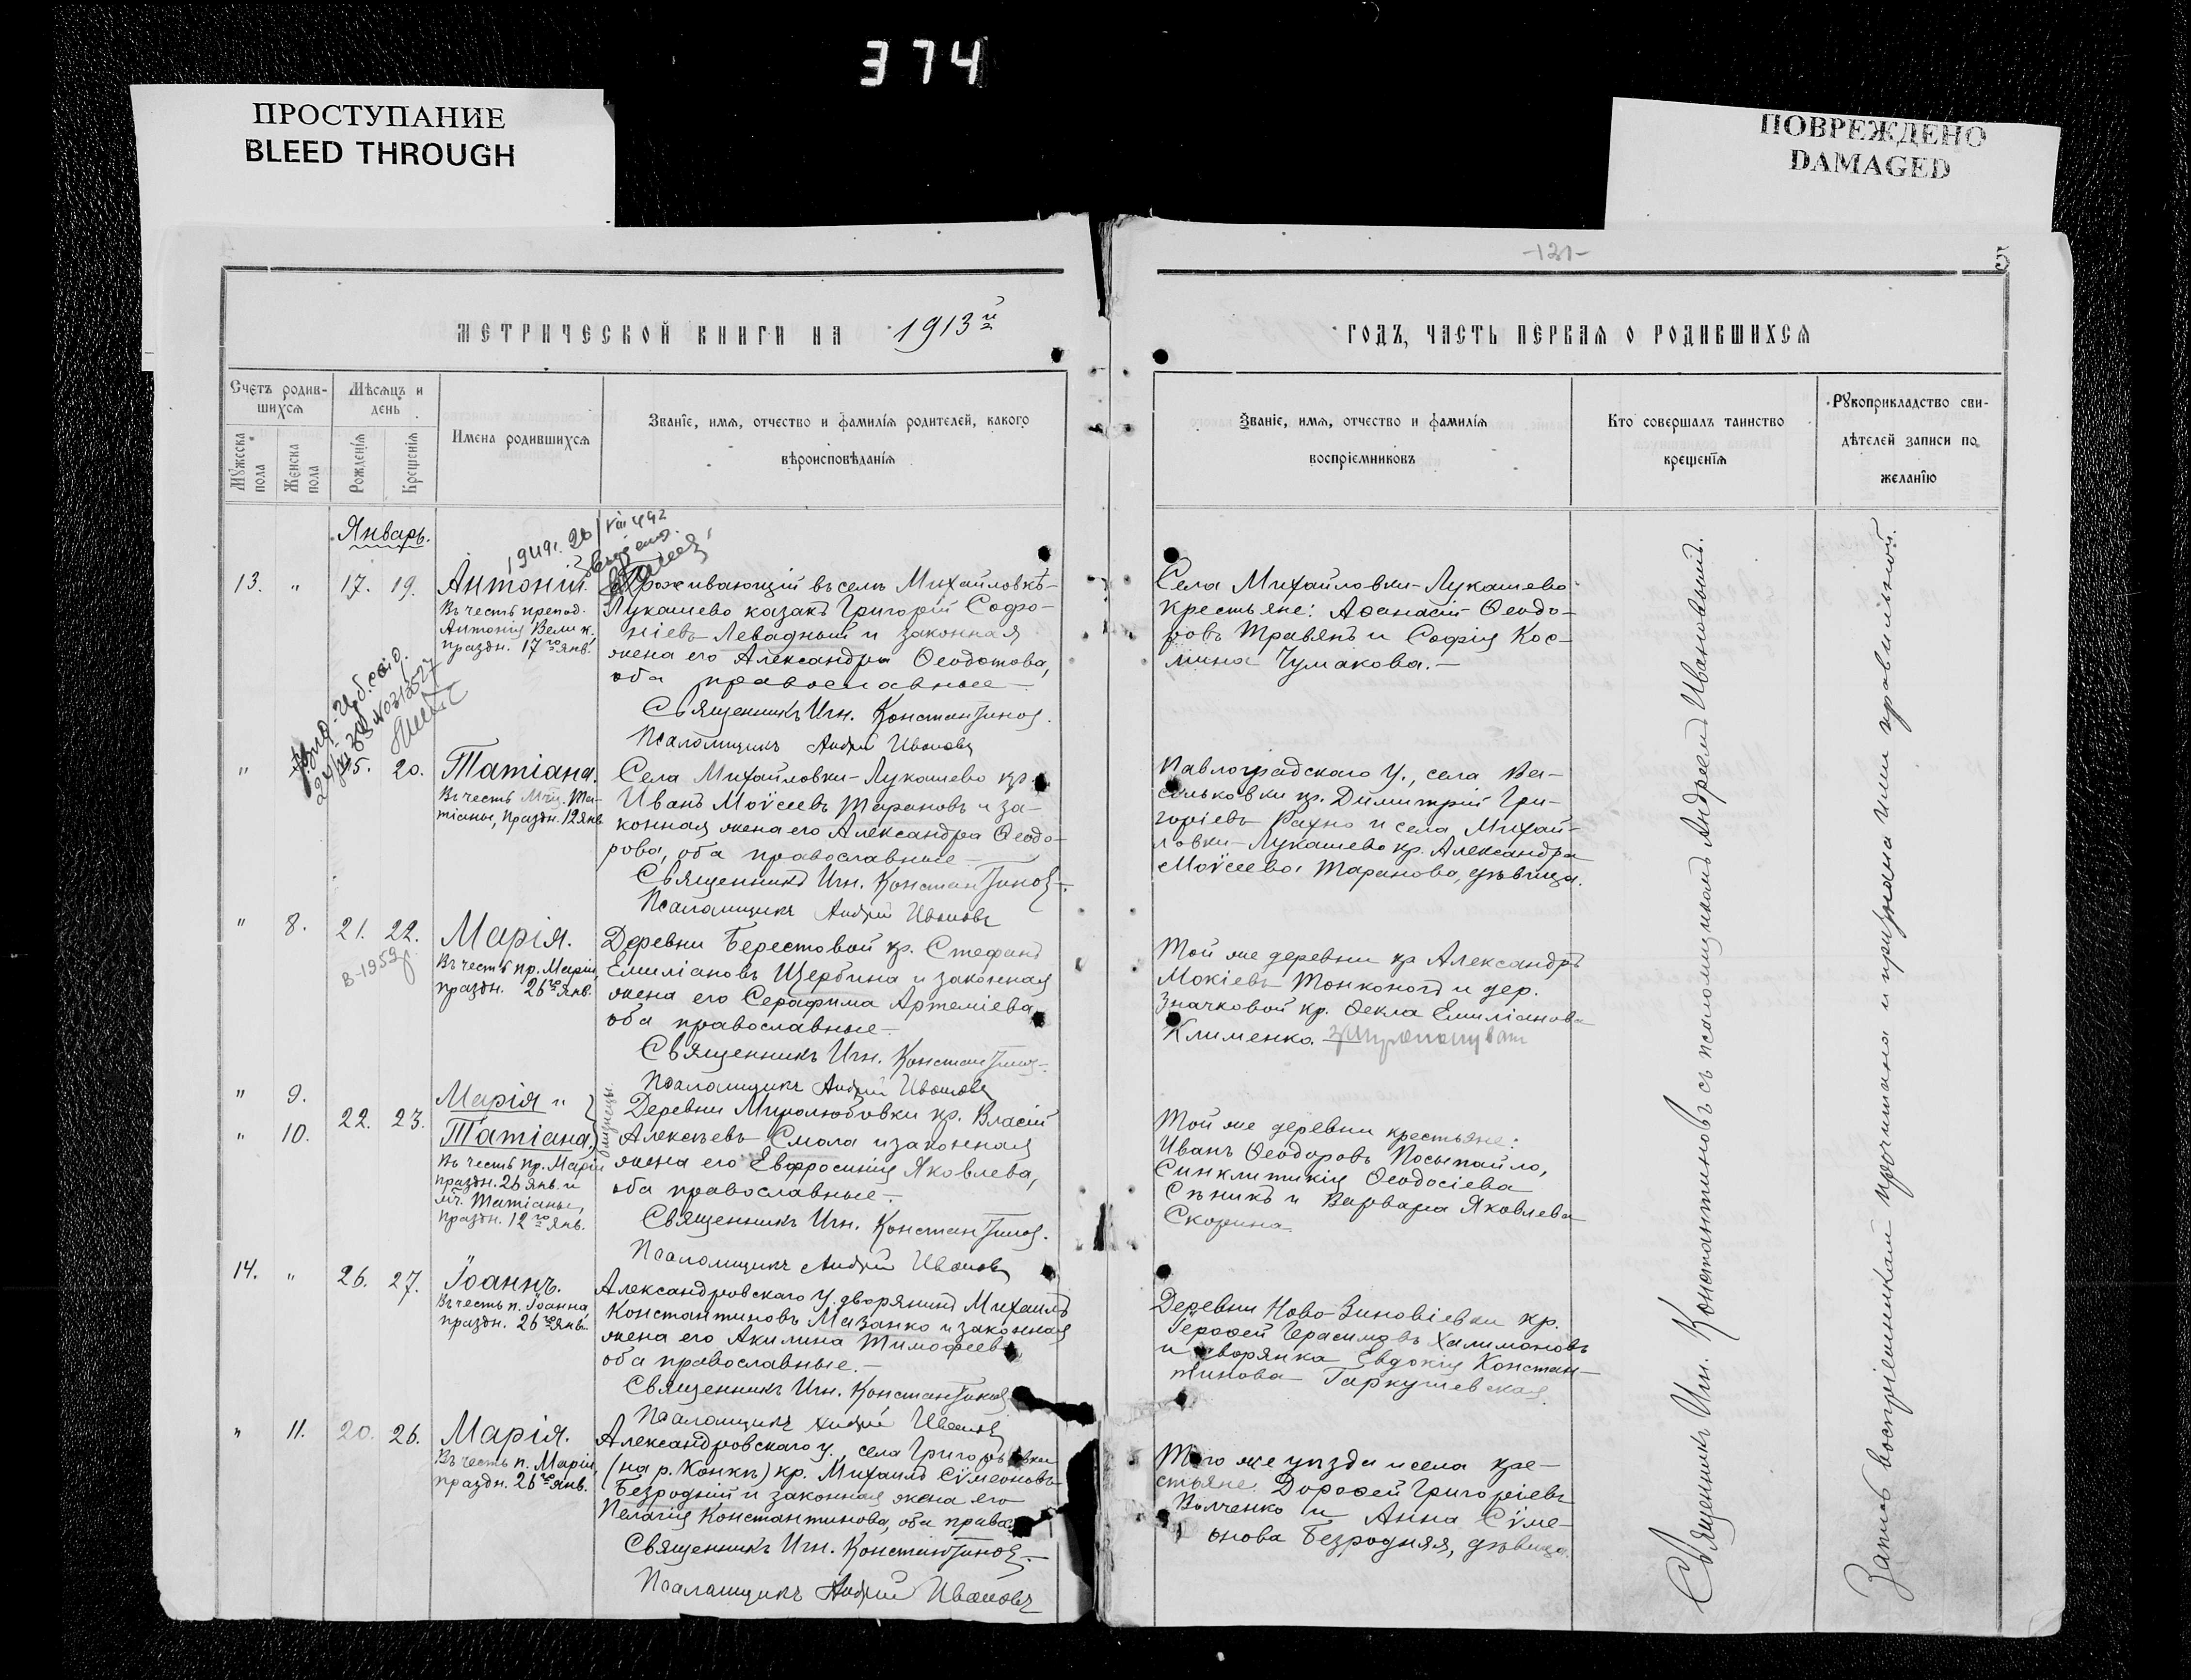 374
ПРОСТУПАНИЕ
BLEED THROUGH
ПОВРЕЖДЕНО
DAMAGED
-131-
5
МЕТРИЧЕСКОЙ КНИГИ НА 1913й
ГОДЪ, ЧАСТЬ ПЕРВАЯ О РОДИВШИХСЯ
Счетъ родив-
шихся
Мужеска пола
Женска пола
Мѣсяцъ и
день
Рожденія
Крещенія
Имена родившихся
Званіе, имя, отчество и фамилія родителей, какого
вѣроисповѣданія
Званіе, имя, отчество и фамилія
воспріемниковъ
Кто совершалъ таинство
крещенія
Рукоприкладство сви-
дѣтелей записи по
желанію
Январь.
13. " 17. 19.
Антоній.
Въ честь препод.
Антонія Велик.,
праздн. 17го янв.
Проживающій въ селѣ Михайловкѣ-
Лукашево казакъ Григорій Софро-
ніевъ Левадный и законная
жена его Александра Ѳеодотова,
оба православные
Священникъ Игн. Константинов.
Псаломщикъ Андрей Ивановъ
Села Михайловки-Лукашево
крестьяне: Аѳанасій Ѳеодо-
ровъ Травянъ и Софія Кос-
мина Чумакова.
" 15. 20.
Татіана.
Въ честь Мчц. Та-
тіаны, праздн. 12 янв.
Села Михайловки-Лукашево кр.
Иванъ Моѵсеевъ Тарановъ и за-
конная жена его Александра Ѳеодо-
рова, оба православные
Священникъ Игн. Константинов.
Псаломщикъ Андрей Ивановъ
Павлоградскаго у., села Ва-
сильковки кр. Димитрій Гри-
горіевъ Рахно и села Михай-
ловки-Лукашево кр. Александра
Моѵсеева Таранова, дѣвица.
" 8. 21. 22.
В-1952г
Марія.
Въ честь пр. Маріи,
праздн. 26го янв.
Деревни Берестовой кр. Стефанъ
Емиліановъ Щербина и законная
жена его Серафима Артеміева,
оба православные.
Священникъ Игн. Константинов.
Псаломщикъ Андрей Ивановъ
Той же деревни кр Александръ
Мокіевъ Тонконогъ и дер.
Значковой кр. Ѳекла Емиліанов-
Клименко.
" 9.
" 10. 22. 23.
Марія и
Татіана,
близнецы
Въ честь пр. Маріи
праздн. 26 янв. и
мч. Татіаны,
праздн. 12го янв.
Деревни Миролюбовки кр. Власій
Алексѣевъ Смола и законная
жена его Евфросинія Яковлева,
оба православные.
Священникъ Игн. Константинов.
Псаломщикъ Андрей Ивановъ
Той же деревни крестьяне:
Иванъ Ѳеодоровъ Посыпайло,
Синклитикія Ѳеодосіева
Сѣникъ и Варвара Яковлева
Скорина
14. " 26. 27.
Іоаннъ.
Въ честь п. Іоанна,
праздн. 26го янв.
Александровскаго у. дворянинъ Михаилъ
Константиновъ Мазанко и законная
жена его Акилина Тимоѳеев
оба православные.
Священникъ Игн. Константинов
Псаломщикъ Андрей Ивановъ
Деревни Ново-Зиновіевки кр.
Героѳей Герасимовъ Халимоновъ
и дворянка Евдокія Констан-
тинова Гаркушевская
" 11. 20. 26.
Марія.
Въ честь п. Маріи,
праздн. 26го янв.
Александровскаго у., села Григорьевки
(на р. Конкѣ) кр. Михаилъ Сѵмеоновъ
Безродній и законная жена его
Пелагія Константинова, оба правос
Священникъ Игн. Константинов.
Псаломщикъ Андрей Ивановъ
Того же уѣзда и села кре-
стьяне: Дороѳей Григоріевъ
Волченко и Анна Сѵме-
онова Безродняя, дѣвица.
Священникъ Игн. Константиновъ съ псаломщикомъ Андреемъ Ивановымъ.
Запись воспріемниками прочитана и признана ими правильной.